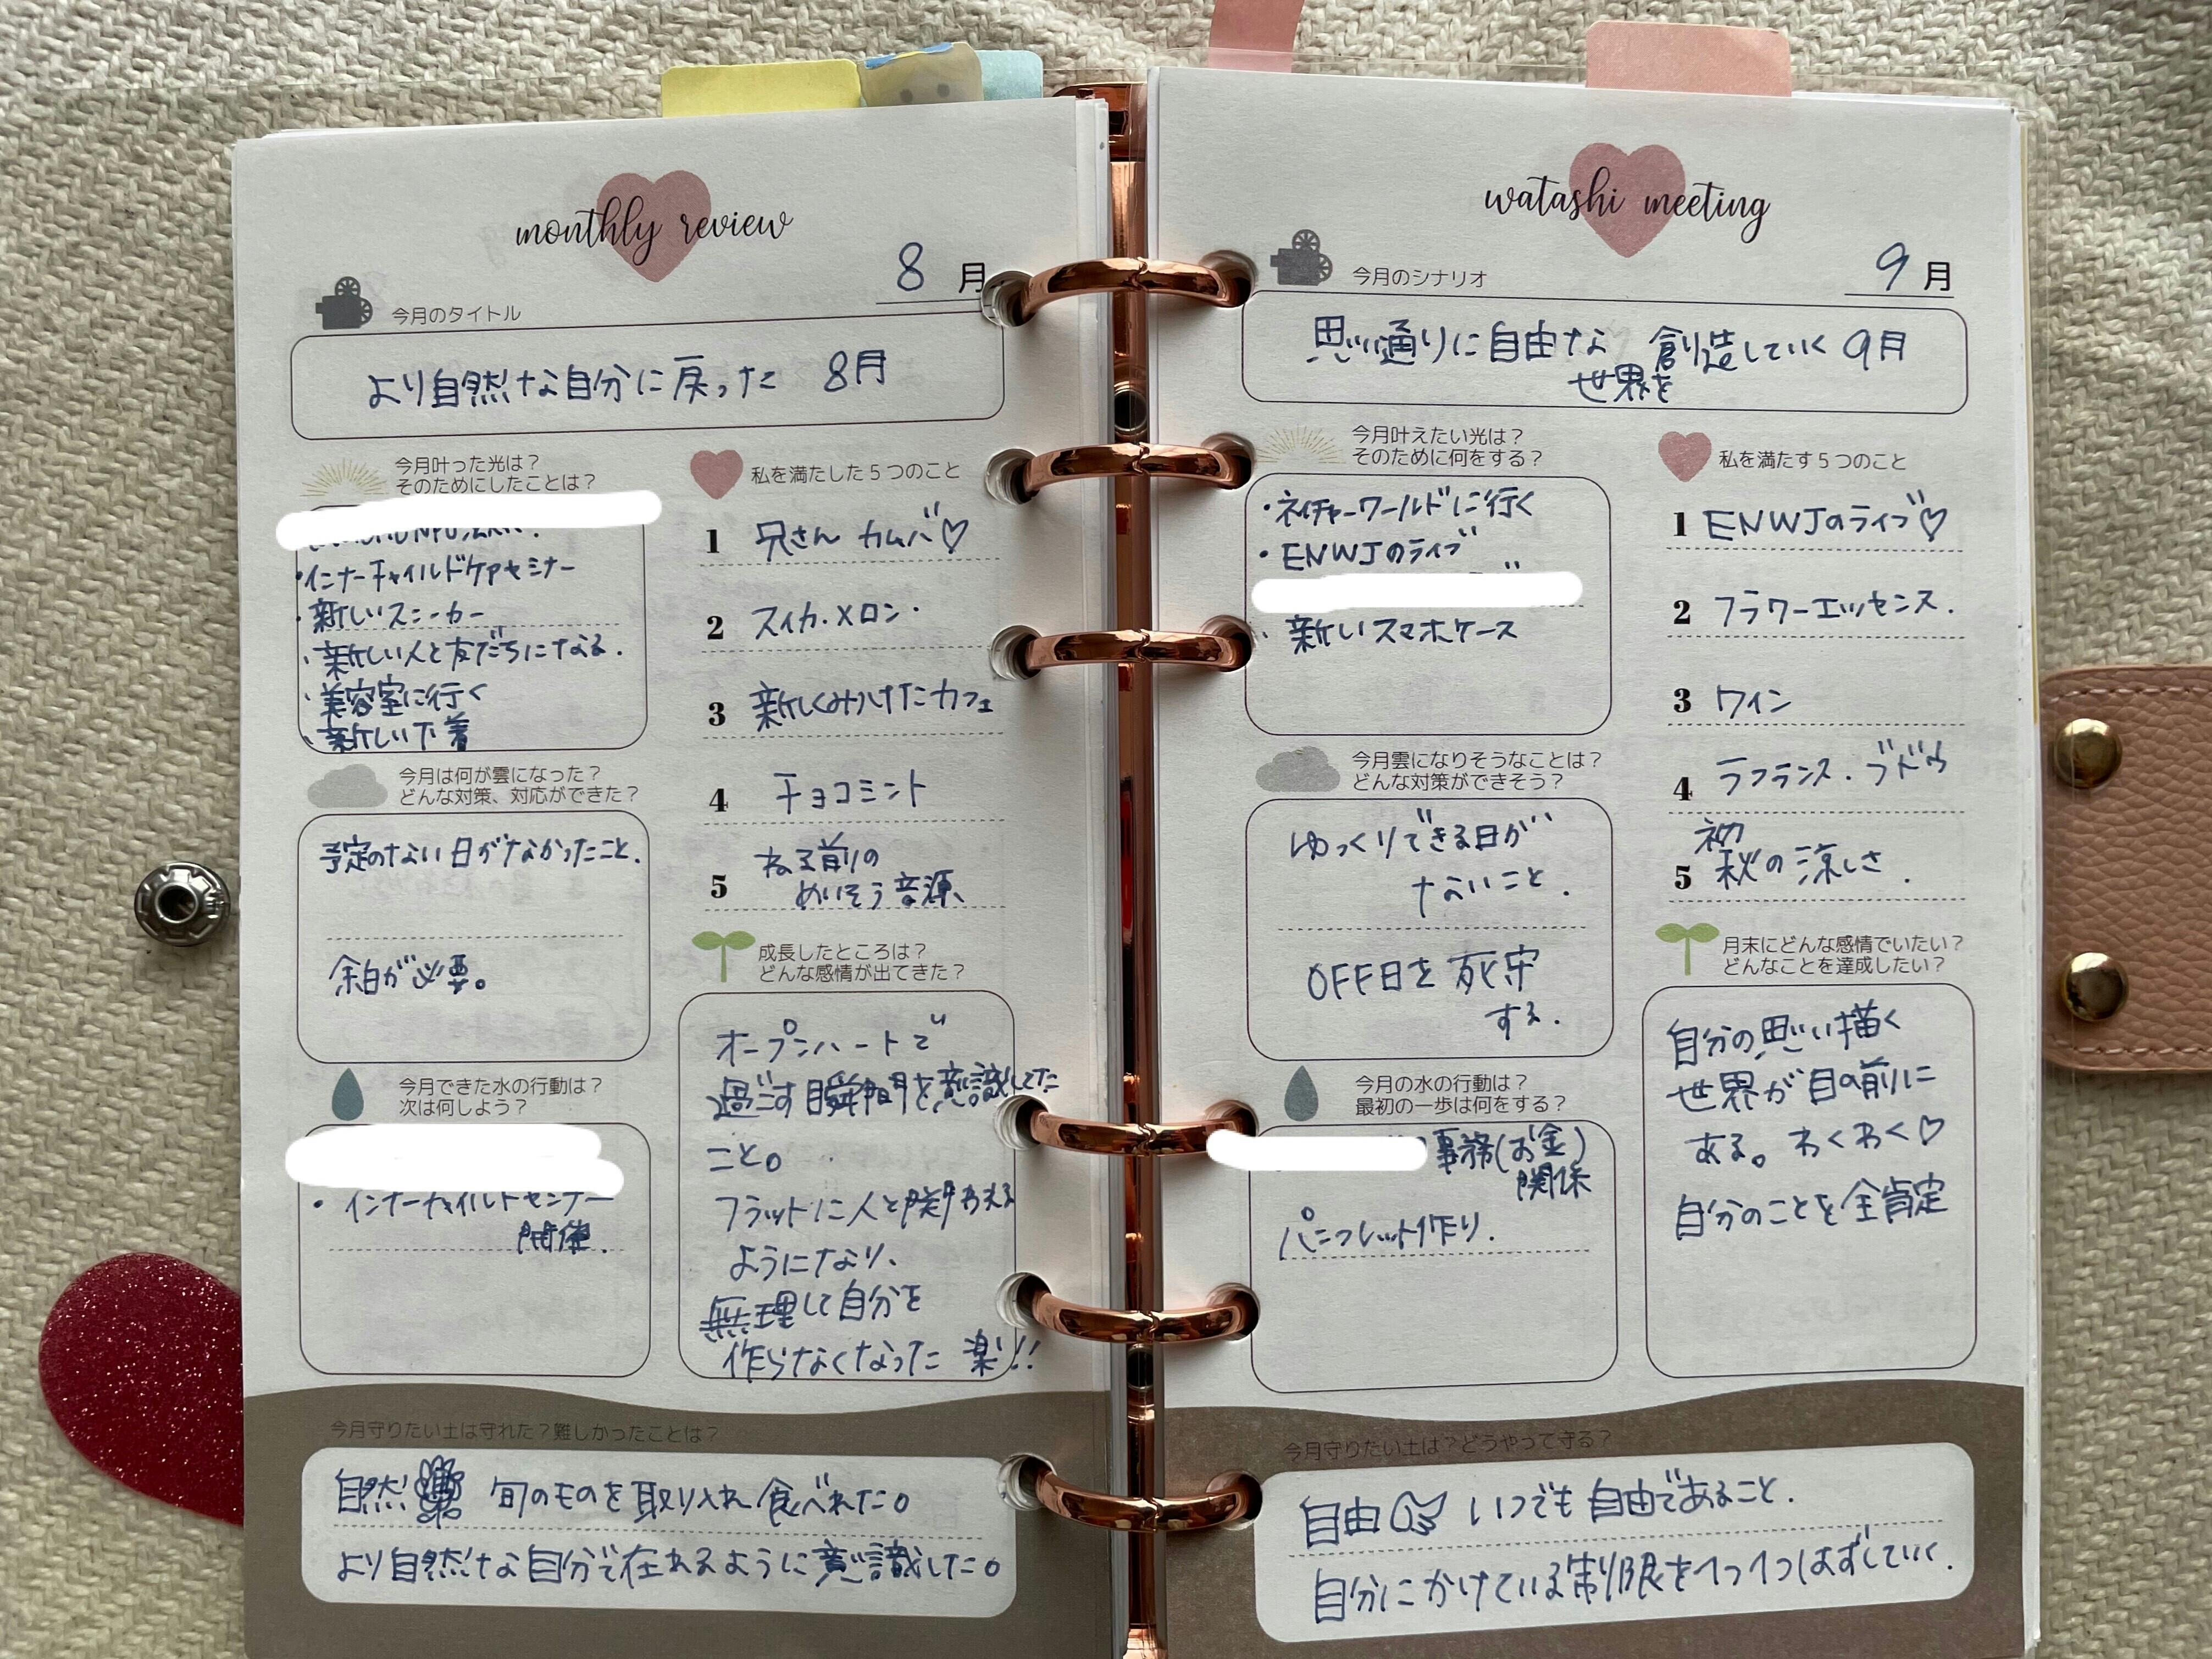 monthly review
8月
今月のタイトル
より自然な自分に戻った 8月
今月叶った光は？
そのためにしたことは？
・インナーチャイルドケアセミナー
・新しいスニーカー
・新しい人と友だちになる.
・美容室に行く
・新しい下着
私を満たした5つのこと
1 兄さん カムバ♡
2 スイカ・メロン・
3 新しくみつけたカフェ
4 チョコミント
5 ねる前の
めいそう音源、
今月は何が雲になった？
どんな対策、対応ができた？
予定のない日がなかったこと.
余白が必要。
成長したところは？
どんな感情が出てきた？
オープンハートで
過ごす瞬間を意識してた
こと。
フラットに人と関われる
ようになり、
無理して自分を
作らなくなった 楽!!
今月できた水の行動は？
次は何しよう？
・インナーチャイルドセミナー
開催.
今月守りたい土は守れた？難しかったことは？
自然 旬のものを取り入れ食べれた。
より自然な自分で在れるように意識した。
watashi meeting
9月
今月のシナリオ
思い通りに自由な 創造していく 9月
世界を
今月叶えたい光は？
そのために何をする？
・ネイチャーワールドに行く
・ENWJのライブ
・新しいスマホケース
私を満たす5つのこと
1 ENWJのライブ♡
2 フラワーエッセンス.
3 ワイン
4 ラフランス・ブドウ
初
5 秋の涼しさ.
今月雲になりそうなことは？
どんな対策ができそう？
ゆっくりできる日が
ないこと.
OFF日を死守
する.
月末にどんな感情でいたい？
どんなことを達成したい？
自分の思い描く
世界が目の前に
ある。わくわく♡
自分のことを全肯定
今月の水の行動は？
最初の一歩は何をする？
事務(お金)
関係
パンフレット作り.
今月守りたい土は？どうやって守る？
自由 いつでも自由であること.
自分にかけている制限を1つ1つはずしていく.